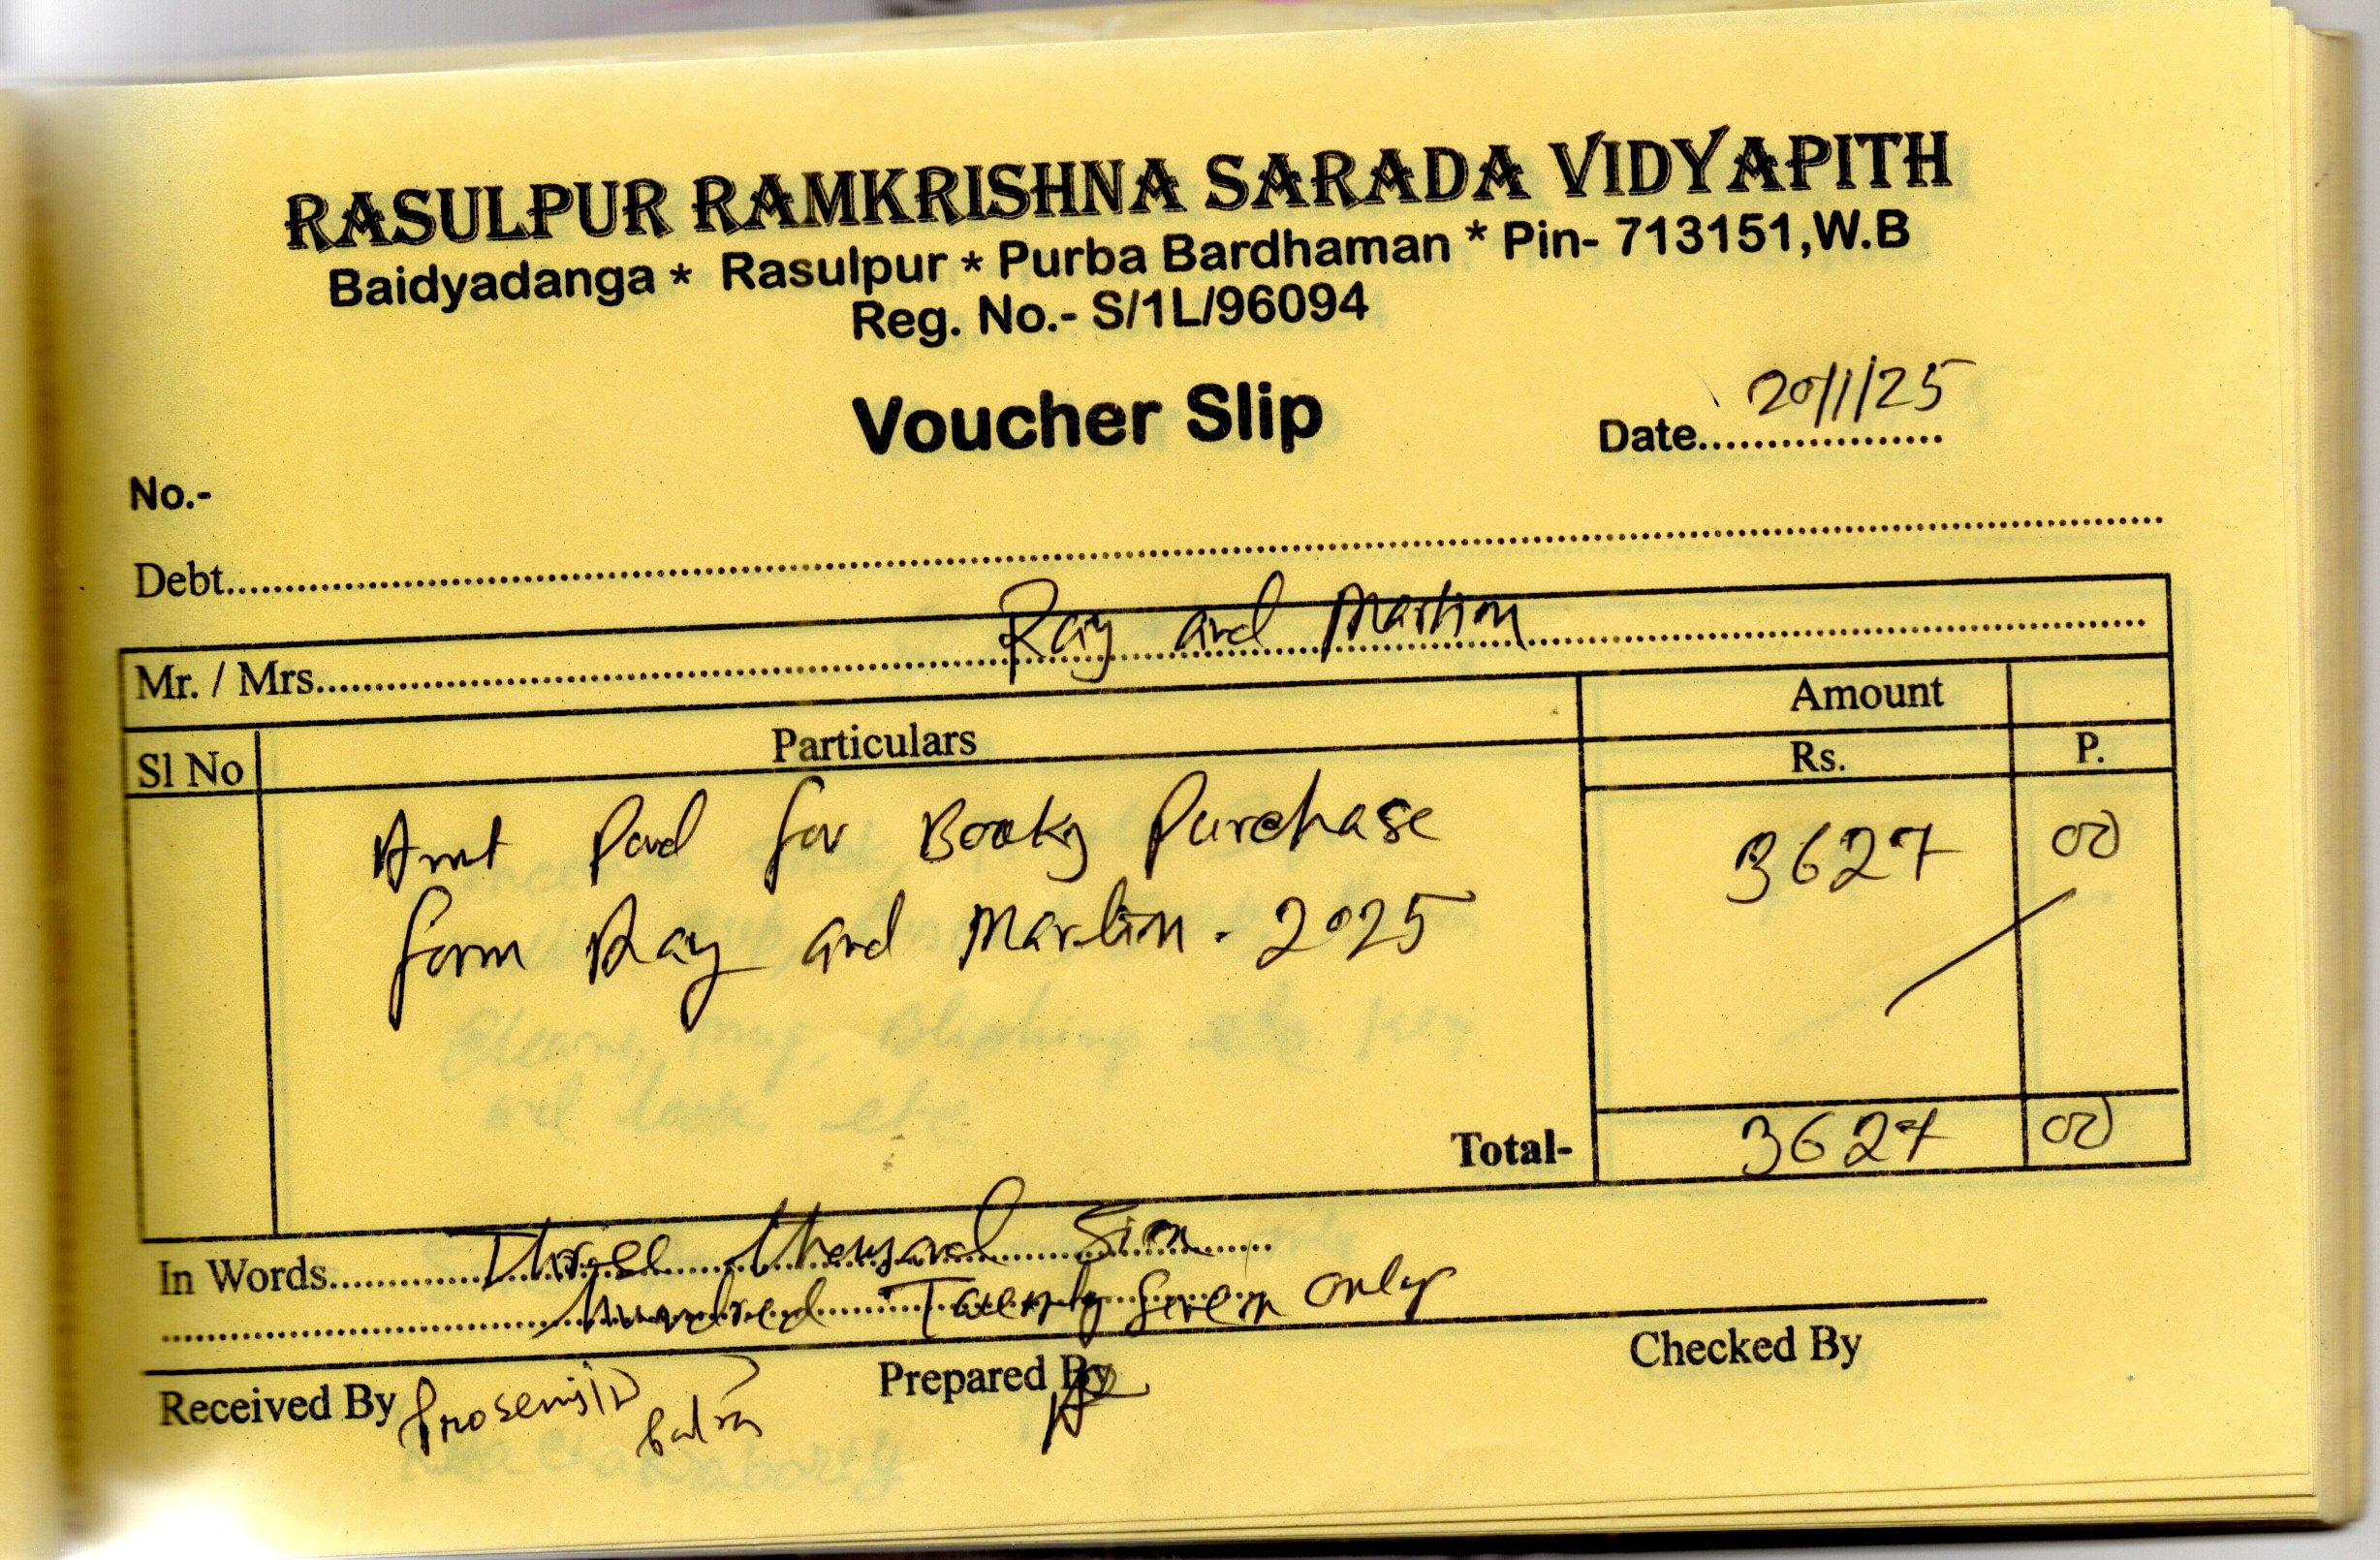 RASULPUR RAMKRISHNA SARADA VIDYAPITH
Baidyadanga * Rasulpur * Purba Bardhaman * Pin- 713151,W.B
Reg. No.- S/1L/96094
Voucher Slip
Date 20/1/25
No.-
Debt
Mr. / Mrs. Ray and Martin
Sl No Particulars Amount
Rs. P.
Amt Paid for Books Purchase 3627 00
form Ray and Martin. 2025
Total- 3627 00
In Words Three thousand Six
hundred Twenty Seven only
Received By Prosenjit Prepared By Checked By